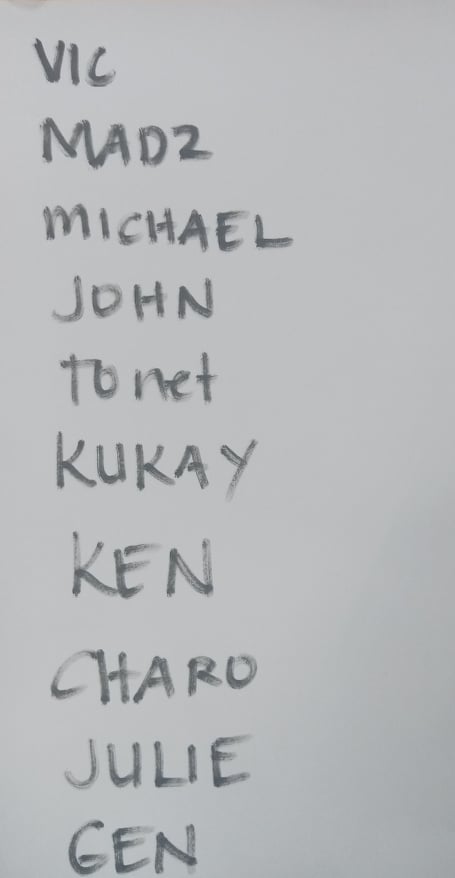 VIC
MADZ
MICHAEL
JOHN
Tonet
KUKAY
KEN
CHARO
JULIE
GEN